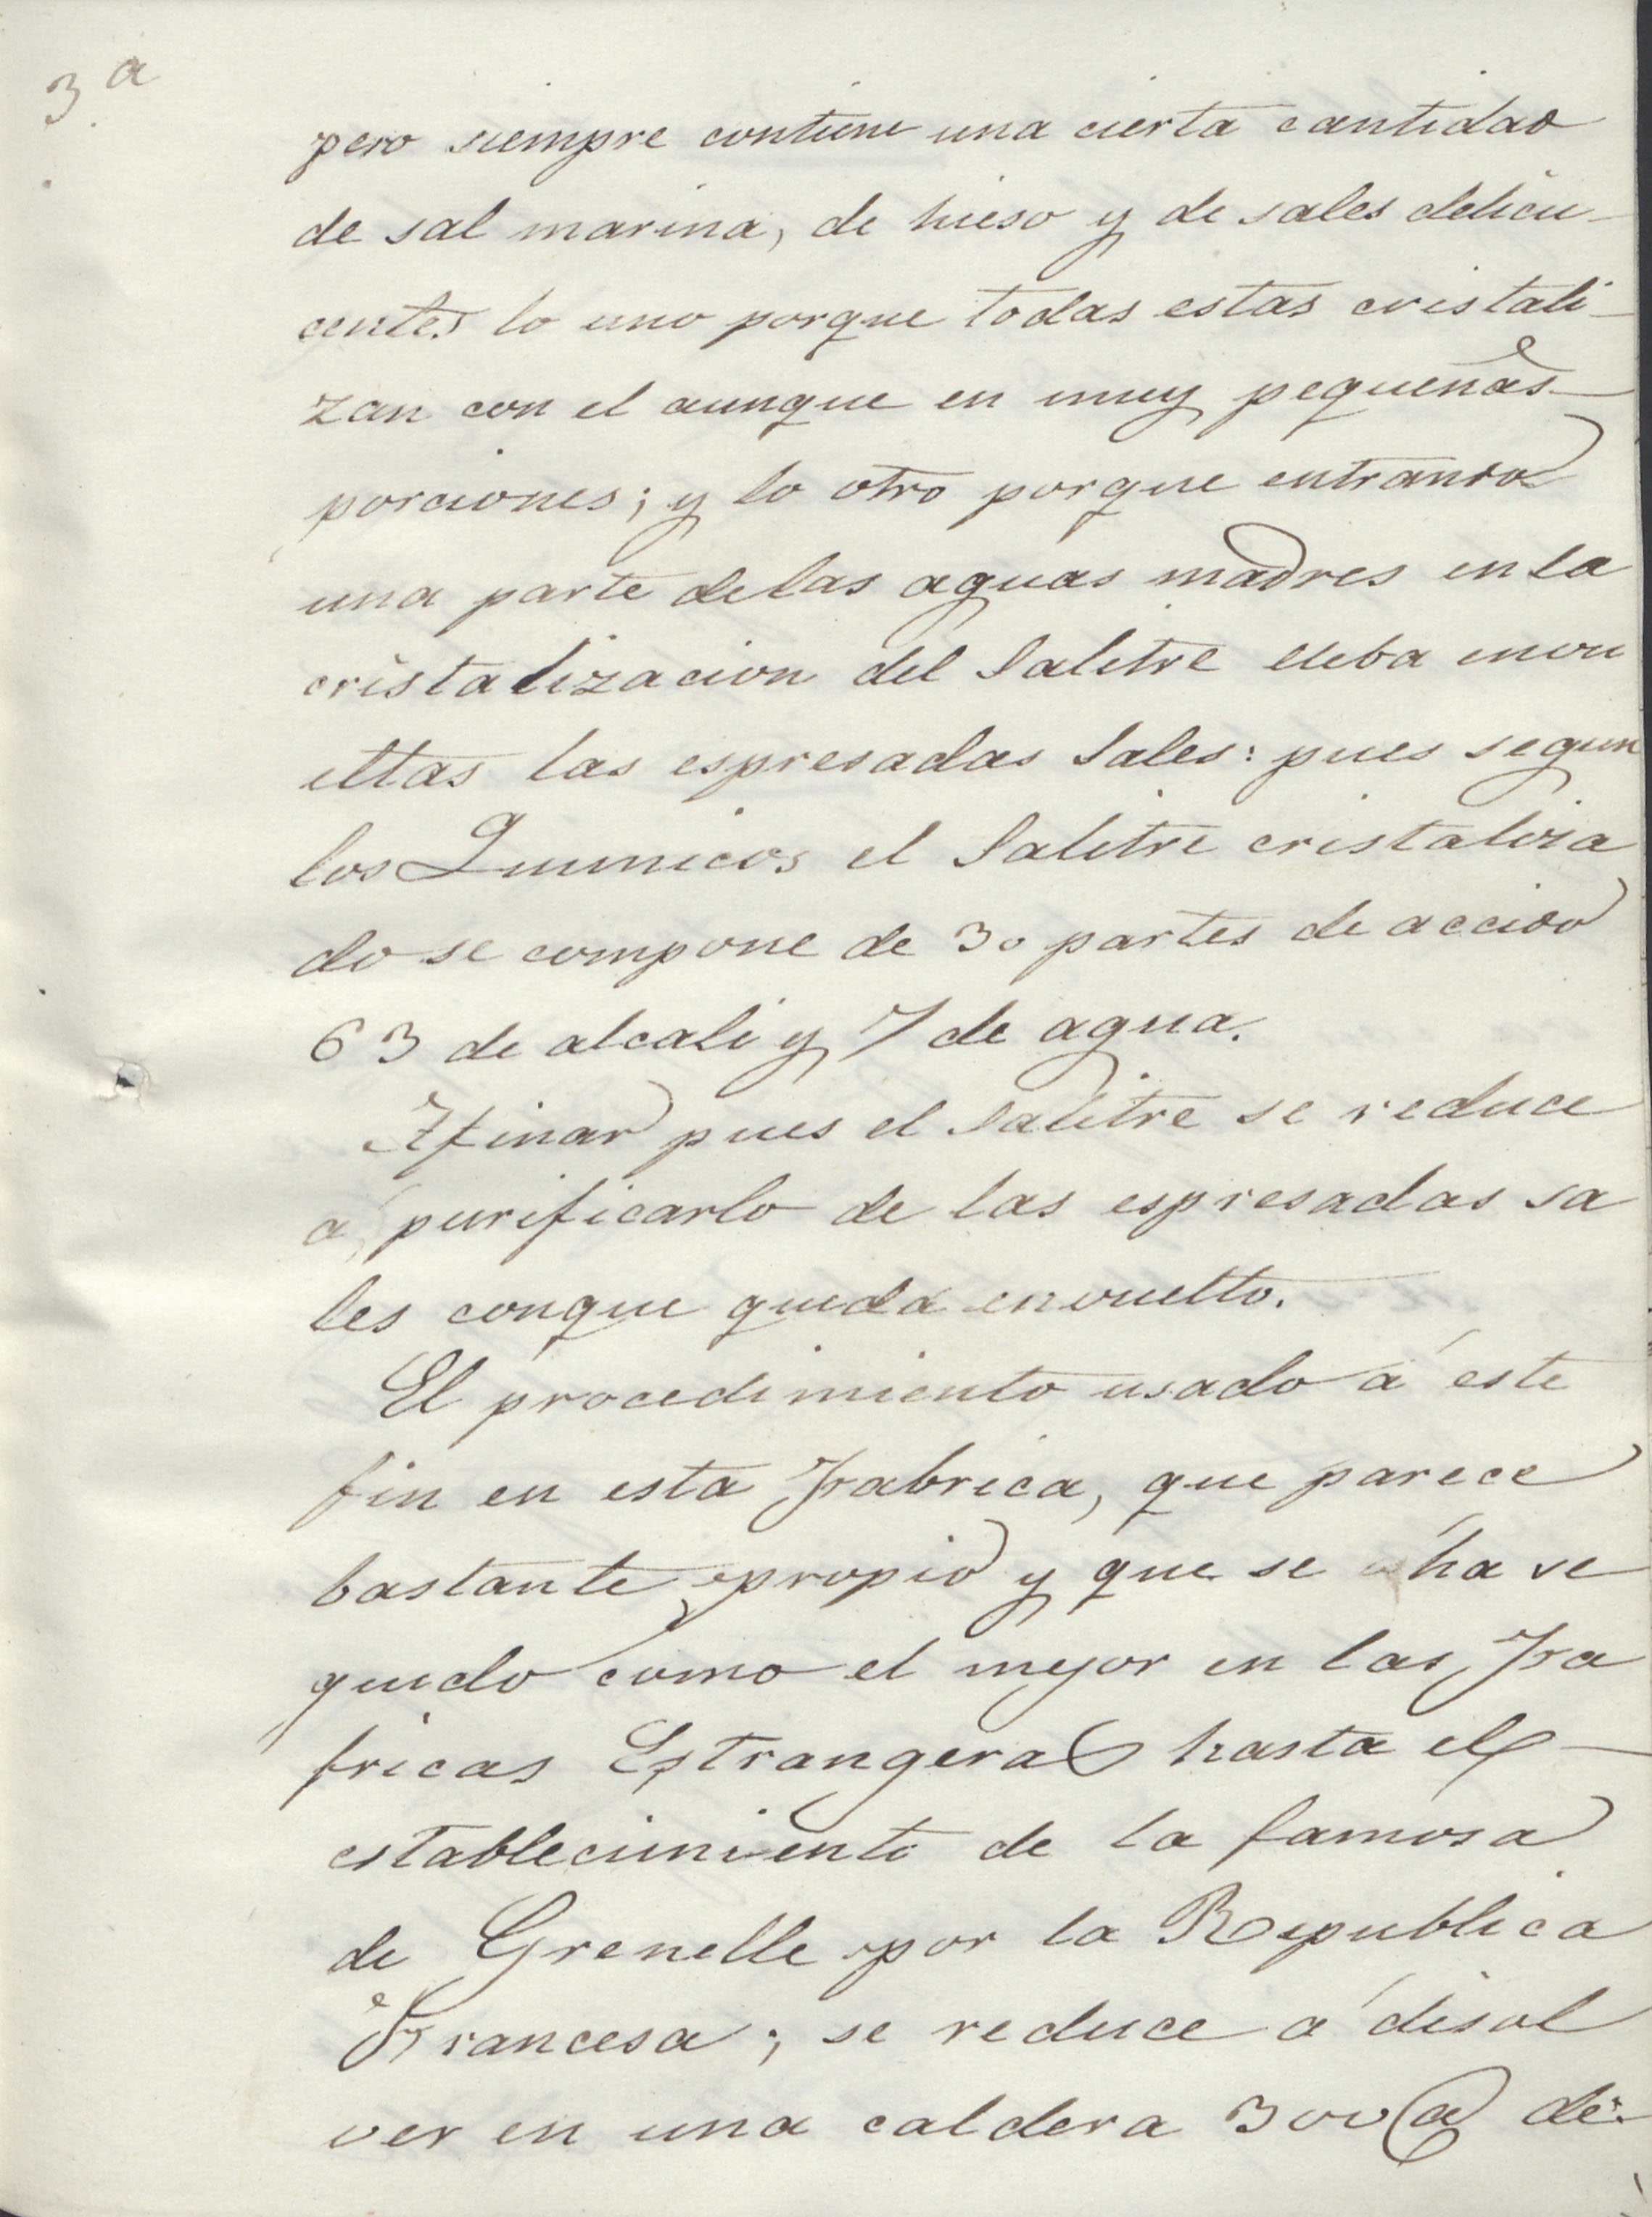 3ª
pero siempre contiene una cierta cantidad
de sal marina, de hieso y de sales delicu-
centes lo uno porque todas estas cristali-
zan con el aunque en muy pequeñas
porciones; y lo otro porque entrando
una parte delas aguas madres en la
cristalizacion del Salitre lleba envu
eltas las espresadas Sales: pues segun
los Quimicos el Salitre cristaliza
do se compone de 30 partes de accido
63 de alcali y 7 de agua.
Afinar pues el Salitre se reduce
á purificarlo de las espresadas sa
les conque queda envuelto.
El procedimiento usado á este
fin en esta Fabrica, que parece
bastante propio y que se ha se
guido como el mejor en las Fa
fricas Estrangeras hasta el
establecimiento de la famosa
de Grenelle por la Republica
Francesa; se reduce á disol
ver en una caldera 300 @ de